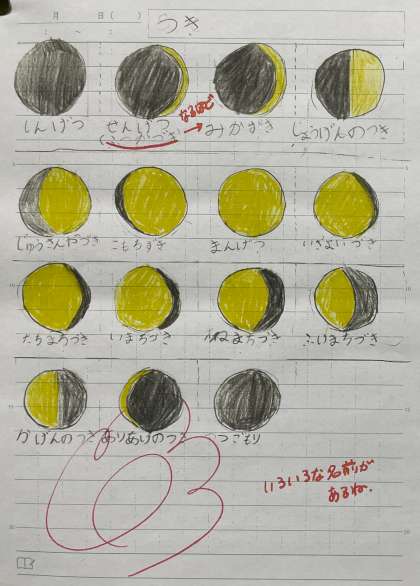 月 日（ ）
つき
しんげつ せんげつ みかずき じょうげんのつき
(ふつかづき)
なるほど
じゅうさんやづき こもちづき まんげつ いざよいづき
たちまちづき いまちづき ねまちづき ふけまちづき
かげんのつき ありあけのつき つごもり
いろいろな名前が
あるね。